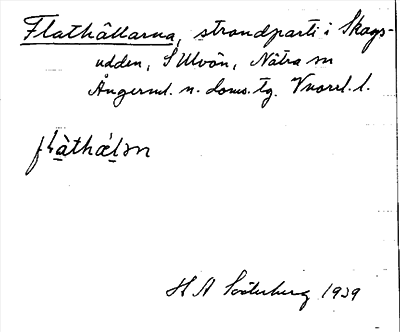 Flathällarna, strandparti i Skags-
udden, S Ulvön, Nätra sn
Ångerml. n. doms. tg. Vnorrl. l.
H A Söderberg 1939